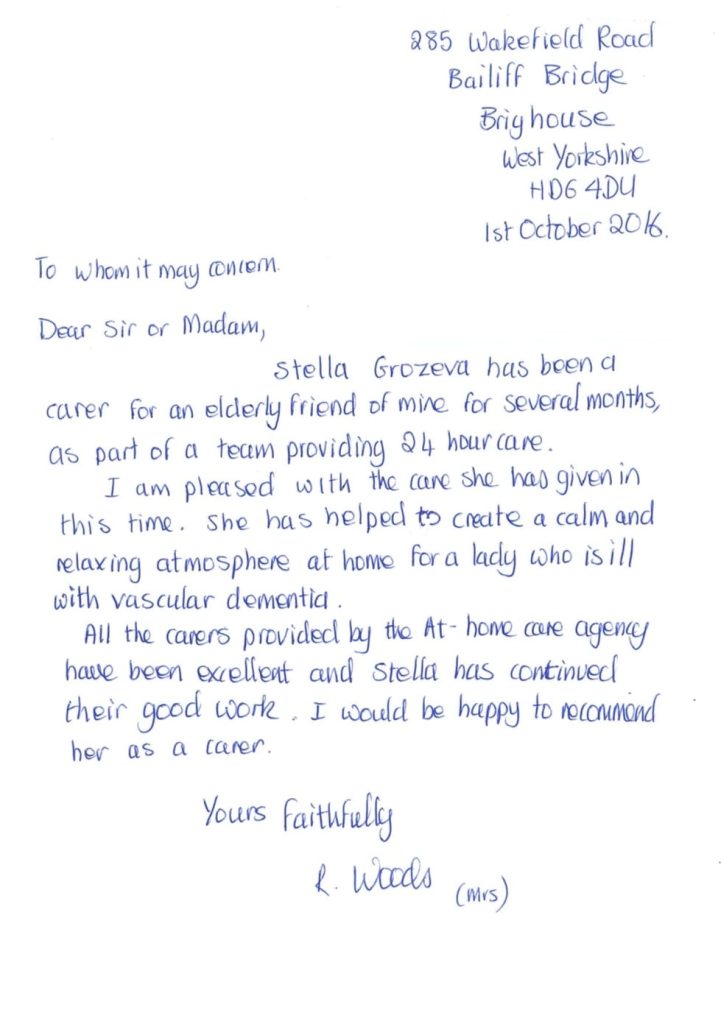 285 Wakefield Road
Bailiff Bridge
Brighouse
West Yorkshire
HD6 4DU
1st October 2016.
To whom it may concern
Dear Sir or Madam,
Stella Grozeva has been a
carer for an elderly friend of mine for several months,
as part of a team providing 24 hour care.
I am pleased with the care she has given in
this time. She has helped to create a calm and
relaxing atmosphere at home for a lady who is ill
with vascular dementia.
All the carers provided by the At-home care agency
have been excellent and Stella has continued
their good work. I would be happy to recommend
her as a carer.
Yours faithfully
R. Woods (Mrs)